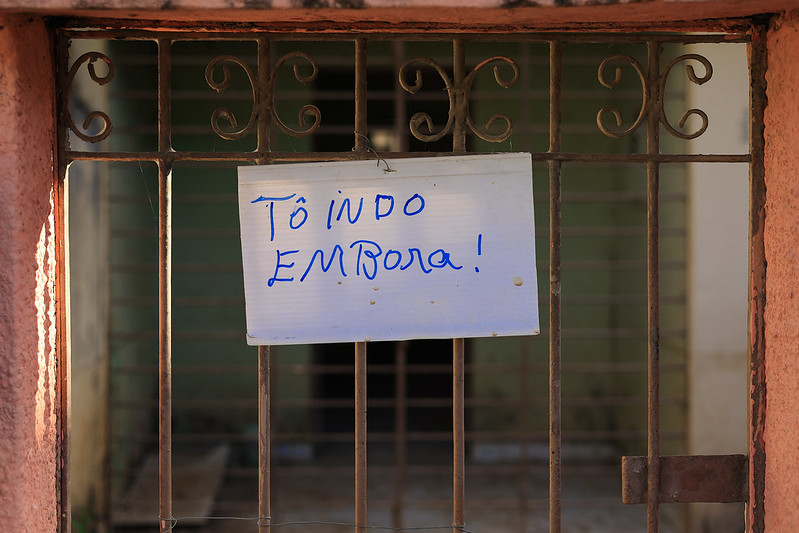 Tô iNDO
EMBora!